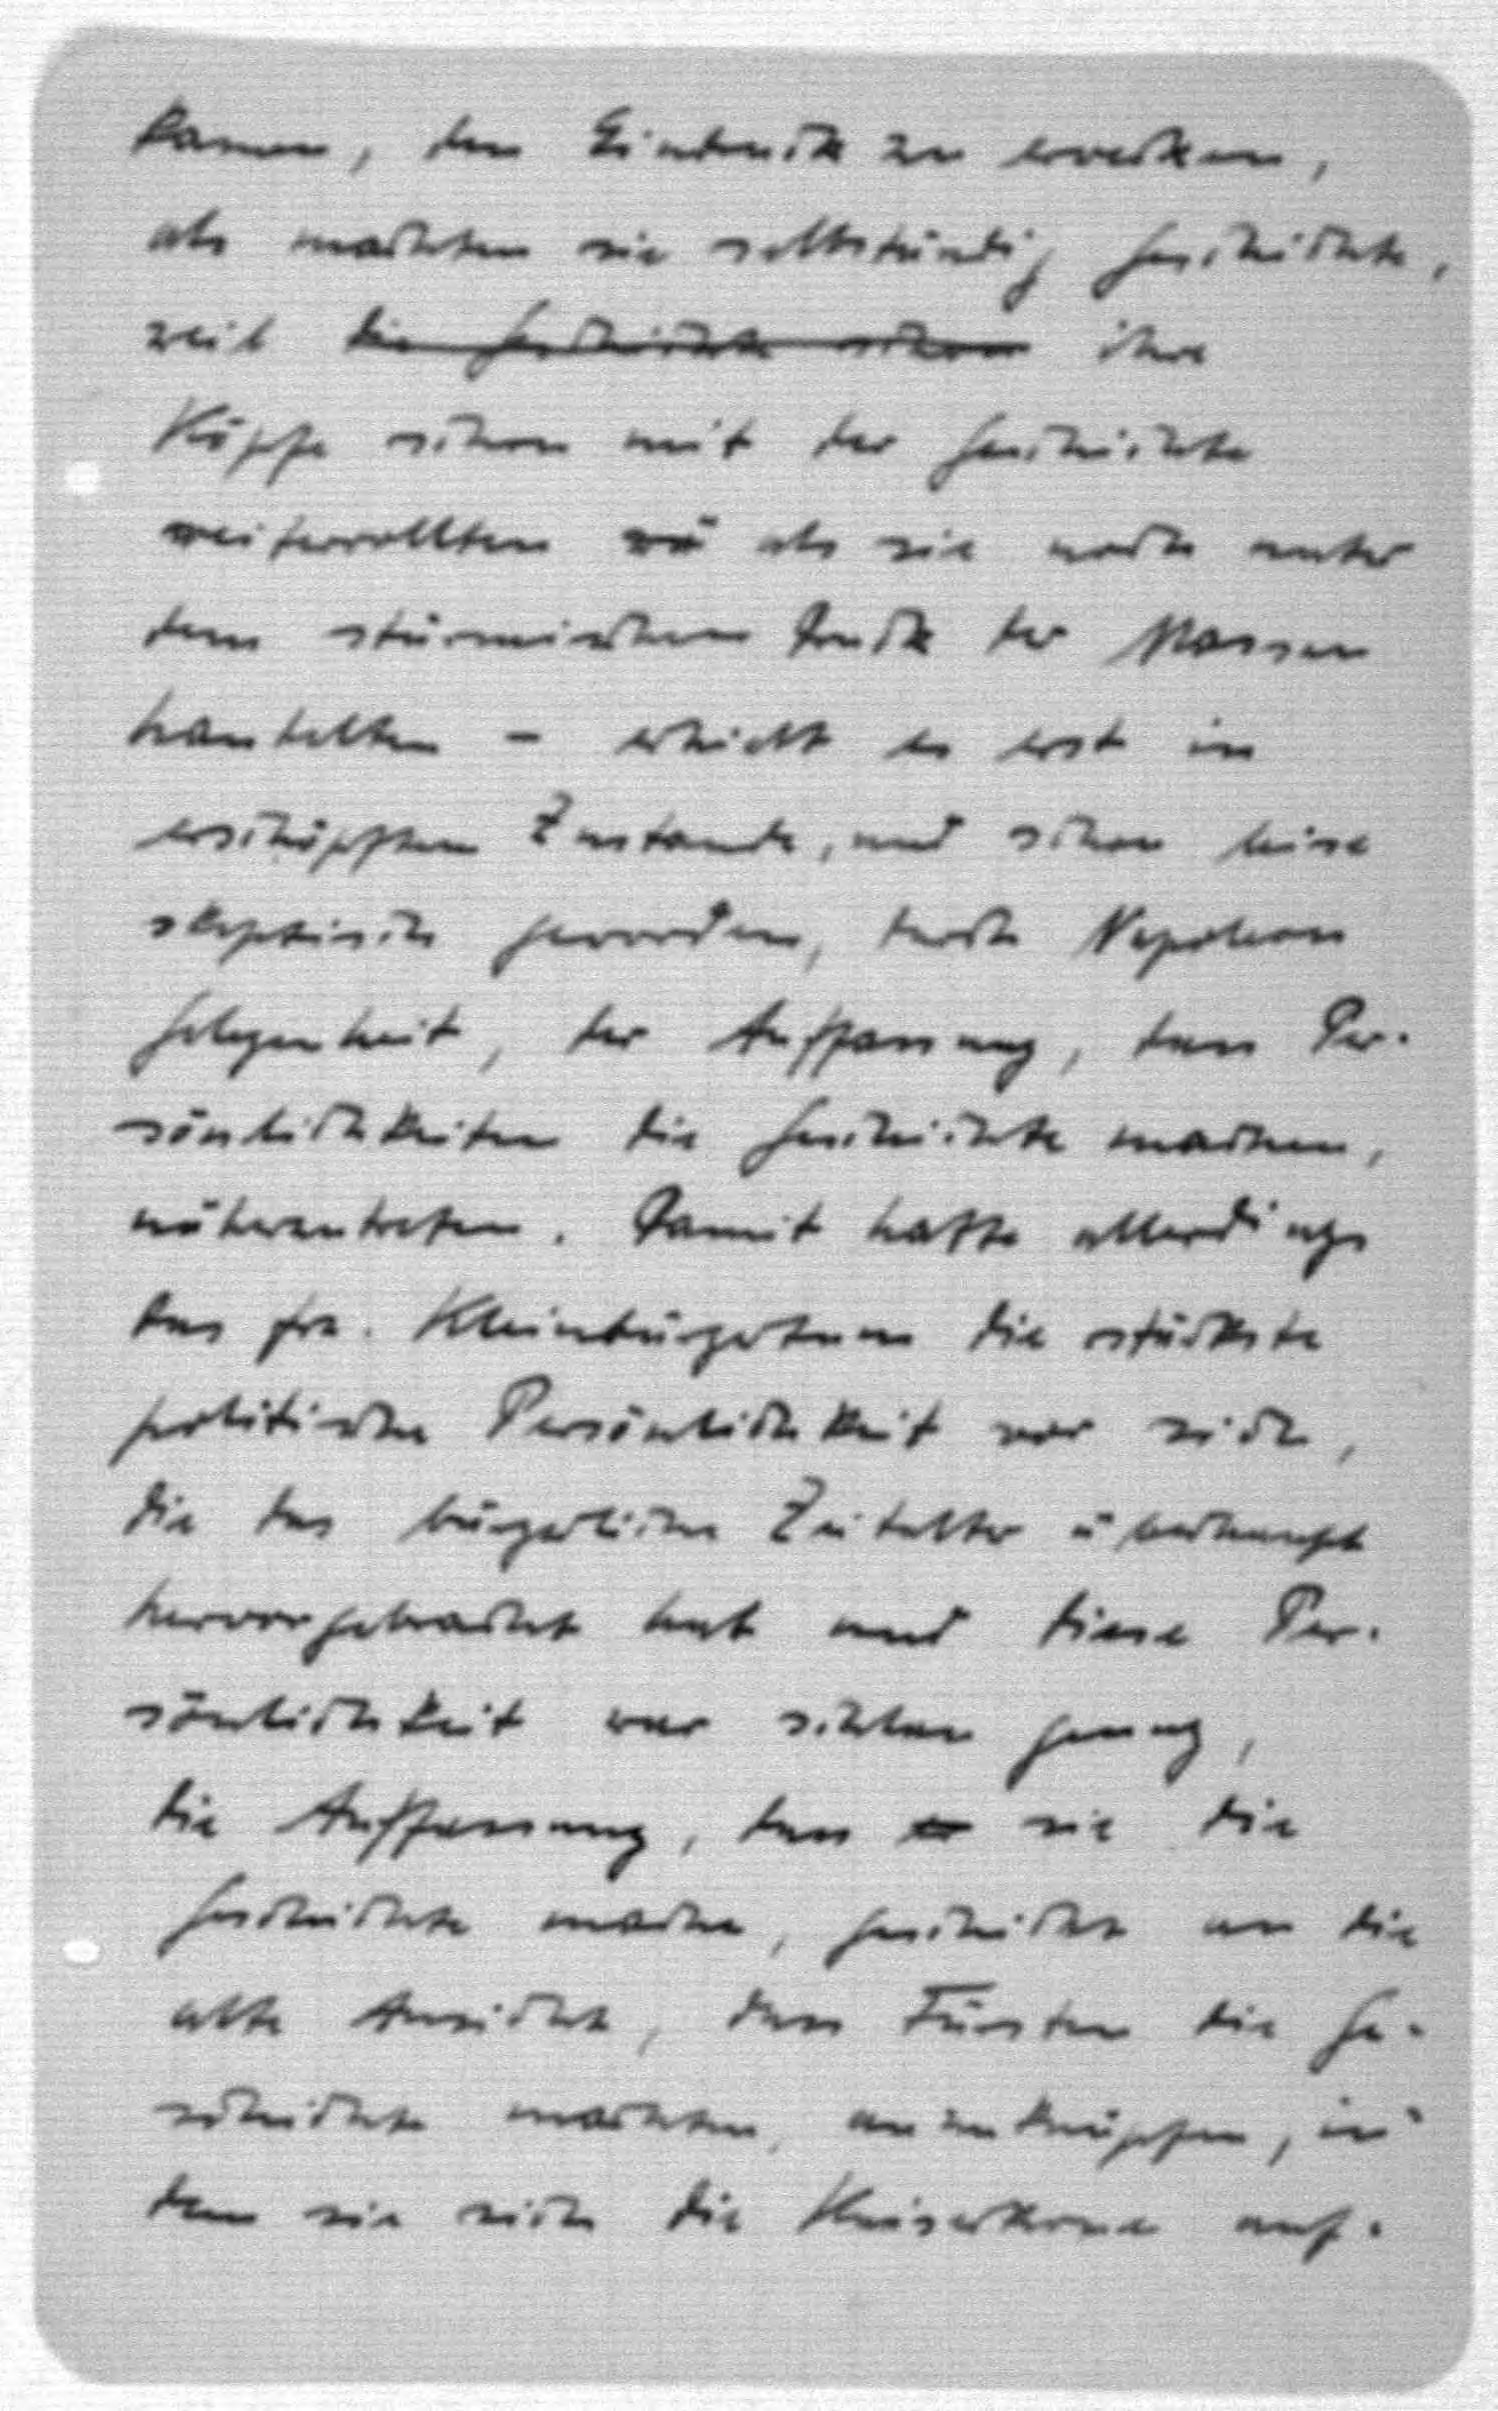 kamen, den Eindruck zu erwecken,
als machten sie selbständig Geschichte,
weil die Geschichte schon ihre
Köpfe schon mit der Geschichte
weiterrollten als sie noch unter
dem stürmischen Druck der Massen
handelten – erhielt es erst im
erschöpften Zustande, und schon leise
skeptisch geworden, durch Napoleon
Gelegenheit, der Auffassung, dass Per-
sönlichkeiten die Geschichte machen,
näherzutreten. Damit hatte allerdings
das frz. Kleinbürgertum die stärkste
politische Persönlichkeit vor sich,
die das bürgerliche Zeitalter überhaupt
hervorgebracht hat und diese Per-
sönlichkeit war schlau genug,
die Auffassung, dass sie die
Geschichte mache, geschickt an die
alte Ansicht, dass Fürsten die Ge-
schichte machten, anzuknüpfen, in-
dem sie sich die Kaiserkrone auf-